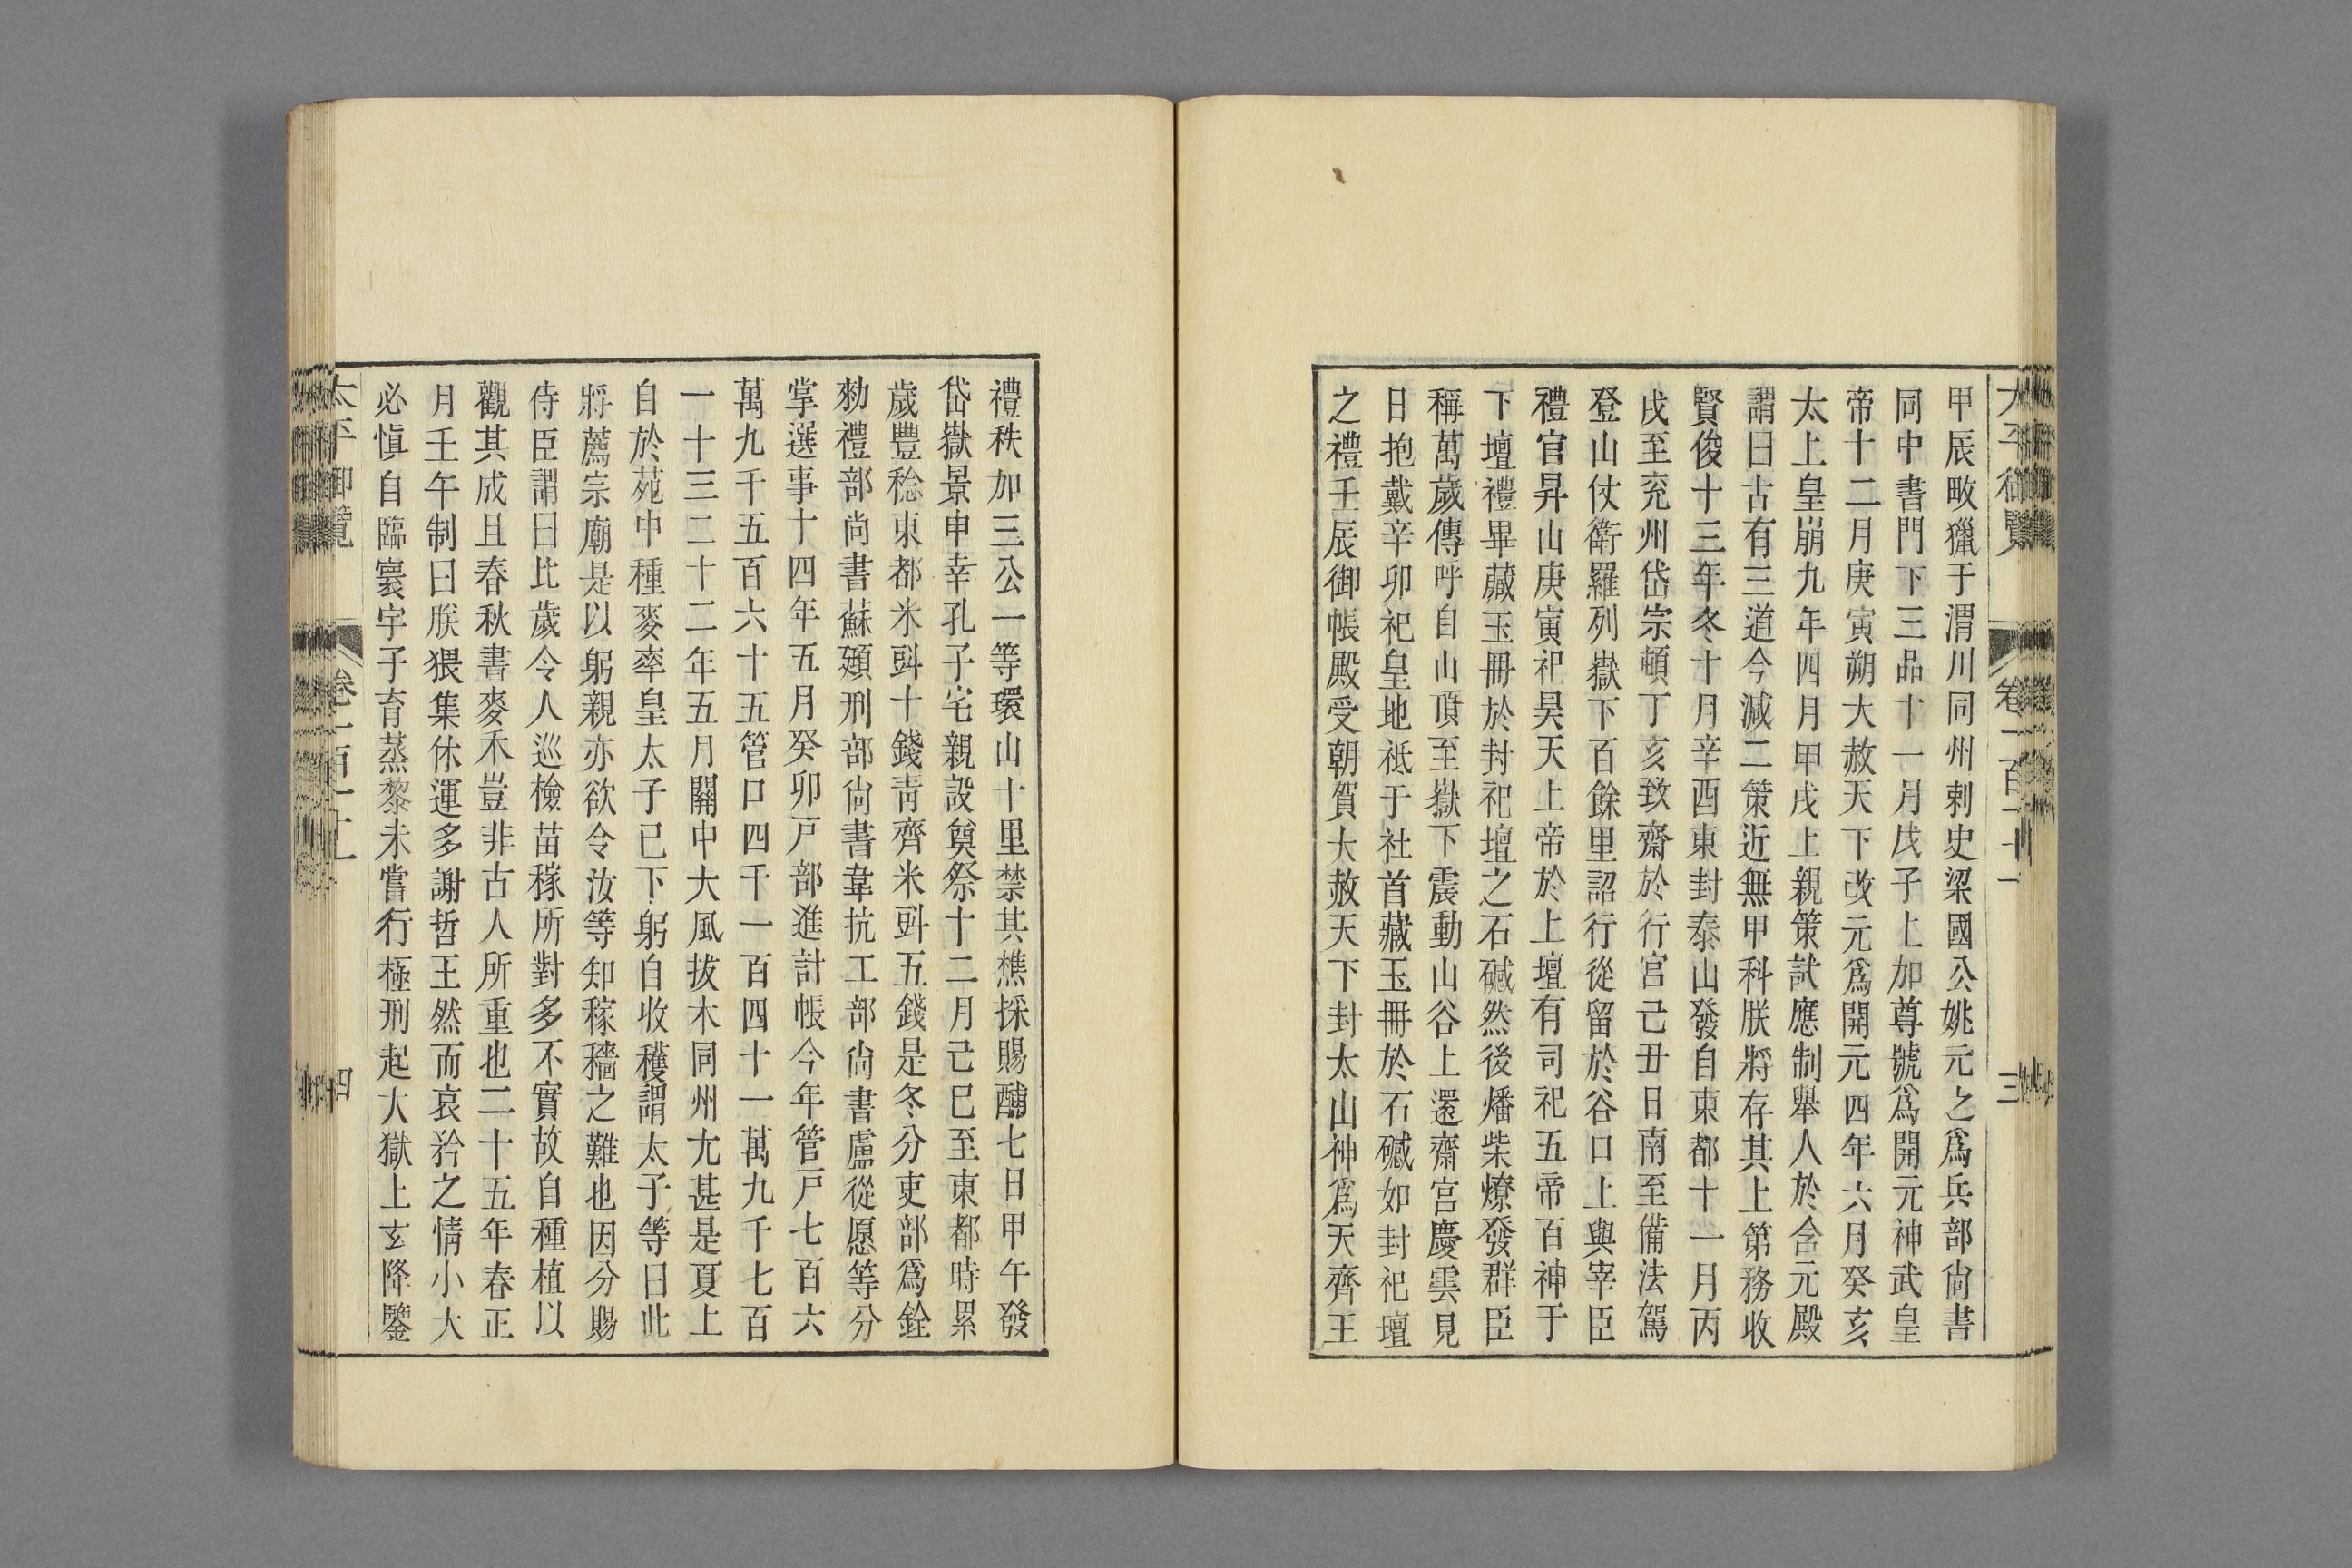 甲辰畋獵于渭川同州刺史梁國公姚元之爲兵部尙書
同中書門下三品十一月戊子上加尊號爲開元神武皇
帝十二月庚寅朔大赦天下改元爲開元四年六月癸亥
太上皇崩九年四月甲戌上親策試應制舉人於含元殿
謂曰古有三道今減二策近無甲科朕將存其上第務收
賢俊十三年冬十月辛酉東封泰山發自東都十一月丙
戌至兖州岱宗頓丁亥致齋於行宮己丑日南至備法駕
登山仗衛羅列嶽下百餘里詔行從留於谷口上與宰臣
禮官昇山庚寅祀昊天上帝於上壇有司祀五帝百神于
下壇禮畢藏玉冊於封祀壇之石𥕢然後燔柴燎發群臣
稱萬歲傳呼自山頂至嶽下震動山谷上還齋宮慶雲見
日抱戴辛卯祀皇地祇于社首藏玉冊於石𥕢如封祀壇
之禮壬辰御帳殿受朝賀大赦天下封太山神爲天齊王
太平御覽 卷一百十一 三
禮秩加三公一等環山十里禁其樵採賜酺七日甲午發
岱嶽景申幸孔子宅親設奠祭十二月己巳至東都時累
歲豐稔東都米㪷十錢靑齊米㪷五錢是冬分吏部爲銓
勑禮部尙書蘇頲刑部尙書韋抗工部尙書盧從愿等分
掌選事十四年五月癸卯戸部進計帳今年管戸七百六
萬九千五百六十五管口四千一百四十一萬九千七百
一十三二十二年五月關中大風拔木同州尤甚是夏上
自於苑中種麥率皇太子已下躬自收穫謂太子等曰此
將薦宗廟是以躬親亦欲令汝等知稼穡之難也因分賜
侍臣謂曰比歲令人巡檢苗稼所對多不實故自種植以
觀其成且春秋書麥禾豈非古人所重也二十五年春正
月壬午制曰朕猥集休運多謝哲王然而哀矜之情小大
必愼自臨寰宇子育蒸黎未嘗行極刑起大獄上玄降鑒
太平御覽 卷一百十一 四